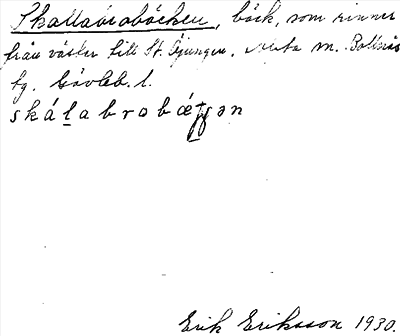 Skallabrobäcken, bäck, som rinner
från väster till St. Öjungen. Alfta sn. Bollnäs
tg. Gävleb. l.
skálabrobæʈʂən
Erik Eriksson 1930.